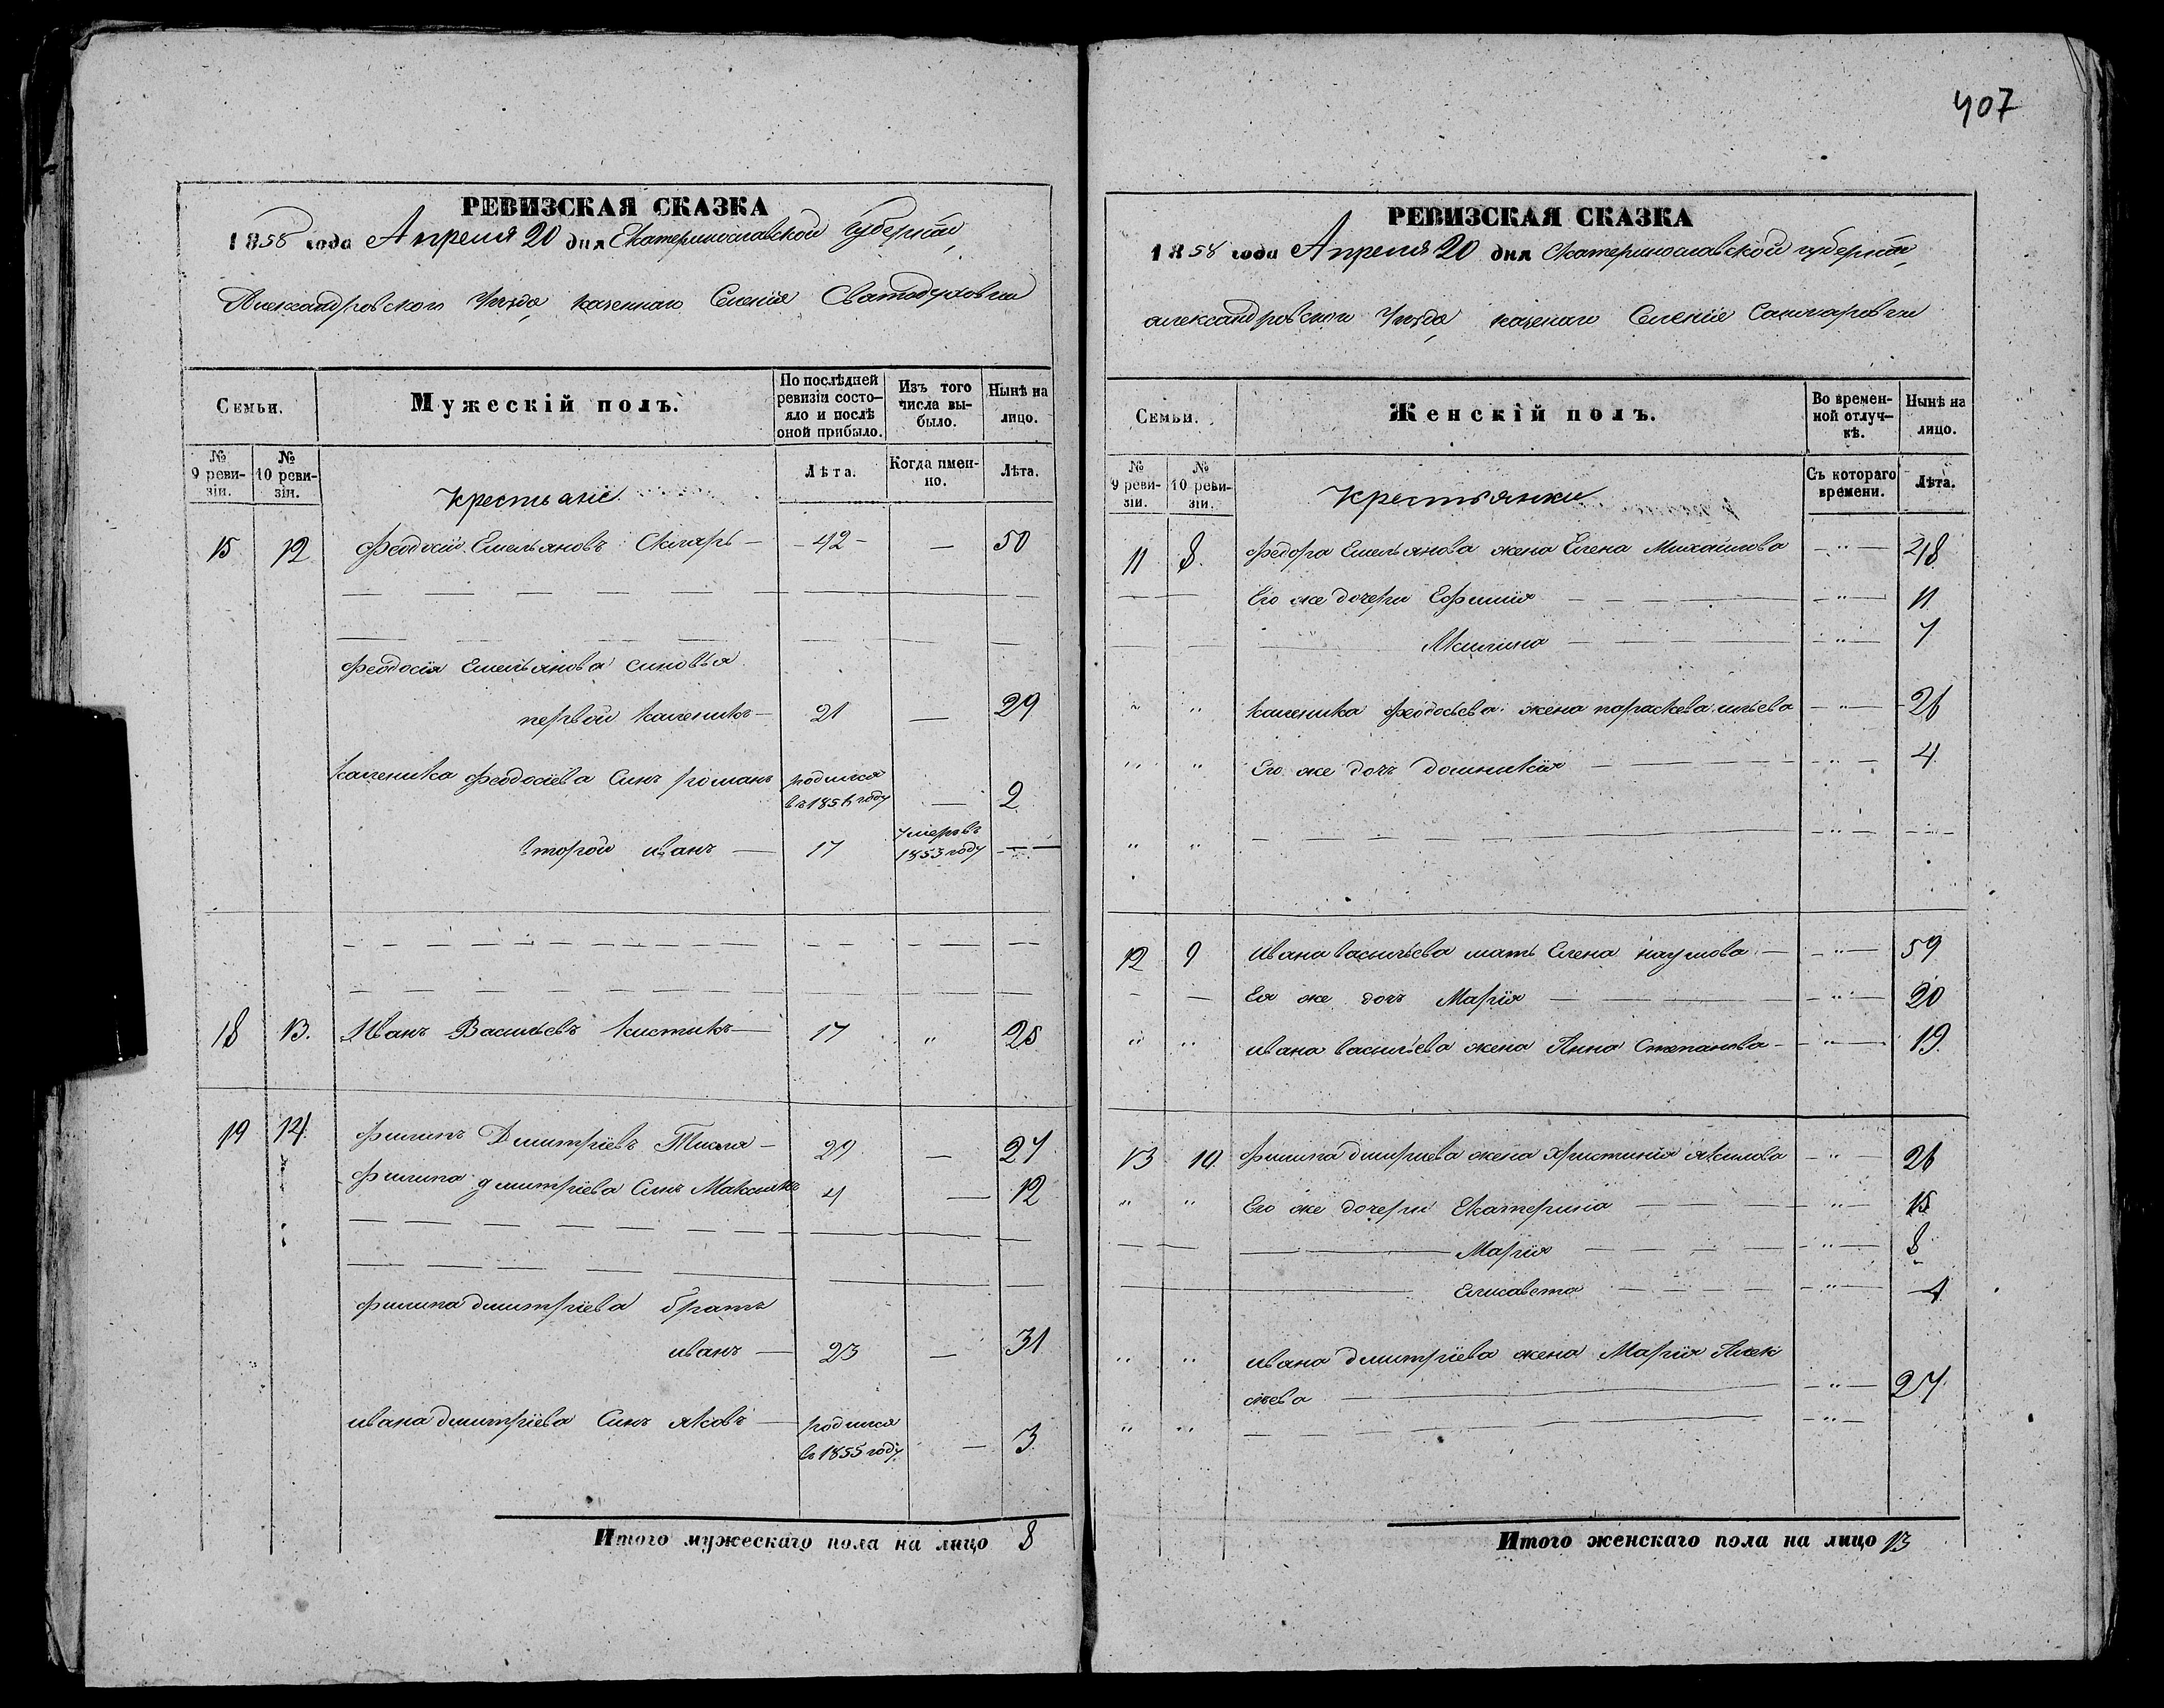 407
РЕВИЗСКАЯ СКАЗКА
1858 года Апреля 20 дня Екатеринославской губерніи,
Александровского Уезда казеннаго Селенія Святодуховки
Семьи.
Мужескій полъ.
По послѣдней ревизіи состо-
яло и послѣ
оной прибыло.
Изъ того
числа вы-
было.
Нынѣ на
лицо.
№
9 реви-
зіи.
№
10 реви-
зіи.
Крестьяне
Лѣта.
Когда имен-
но.
Лѣта.
15 12 Феодосій Емельяновъ Скляръ — 42 — — 50
Феодосія Емельянова синовья
первой Каленикъ — 21 — 29
Каленика Феодосіева Синъ романъ родился
въ 1856 году — 2
второй иванъ — 17 умеръ въ
1853 году — —
18 13. Иванъ Васильевъ Кистикъ — 17 " 25
19 14 Филипъ Дмитріевъ Тисля — 29 — 27
Филипа дмитріева Синъ Максимъ 4 — 12
филипа дмитріева братъ
иванъ — 23 — 31
ивана дмитріева Синъ яковъ — родился
въ 1855 году — 3
Итого мужескаго пола на лицо 8
РЕВИЗСКАЯ СКАЗКА
1858 года Апреля 20 дня Екатеринославской губерніи,
александровского Уезда казенаго Селеніе
Семьи.
Женскій полъ.
Во времен-
ной отлуч-
кѣ.
Нынѣ на
лицо.
№
9 реви-
зіи.
№
10 реви-
зіи.
Крестьянки
Съ котораго
времени.
Лѣта.
11 8. Федора Емельянова жена Елена Михайлова — " — 48
Его же дочери Ефимия — " — 11
Акилина — " — 7
" " Каленика Феодосьева жена параскева ильева — " — 26
" " Его же дочъ домникія — " — 4
" " — " —
12 9 Ивана васильева мать Елена наумова — " — 59
Ея же дочъ Марія — " — 20
" " ивана васильева жена Анна Степанова — " — 19
13 10 филипа дмитриева жена Христинія якимова — " — 26
" " Его же дочери Екатерина — " — 15
Марія — " — 8
Елисавета — " — 4
" " ивана дмитріева жена Марія Алек
сѣева — " — 27
" " — " —
Итого женскаго пола на лицо 13